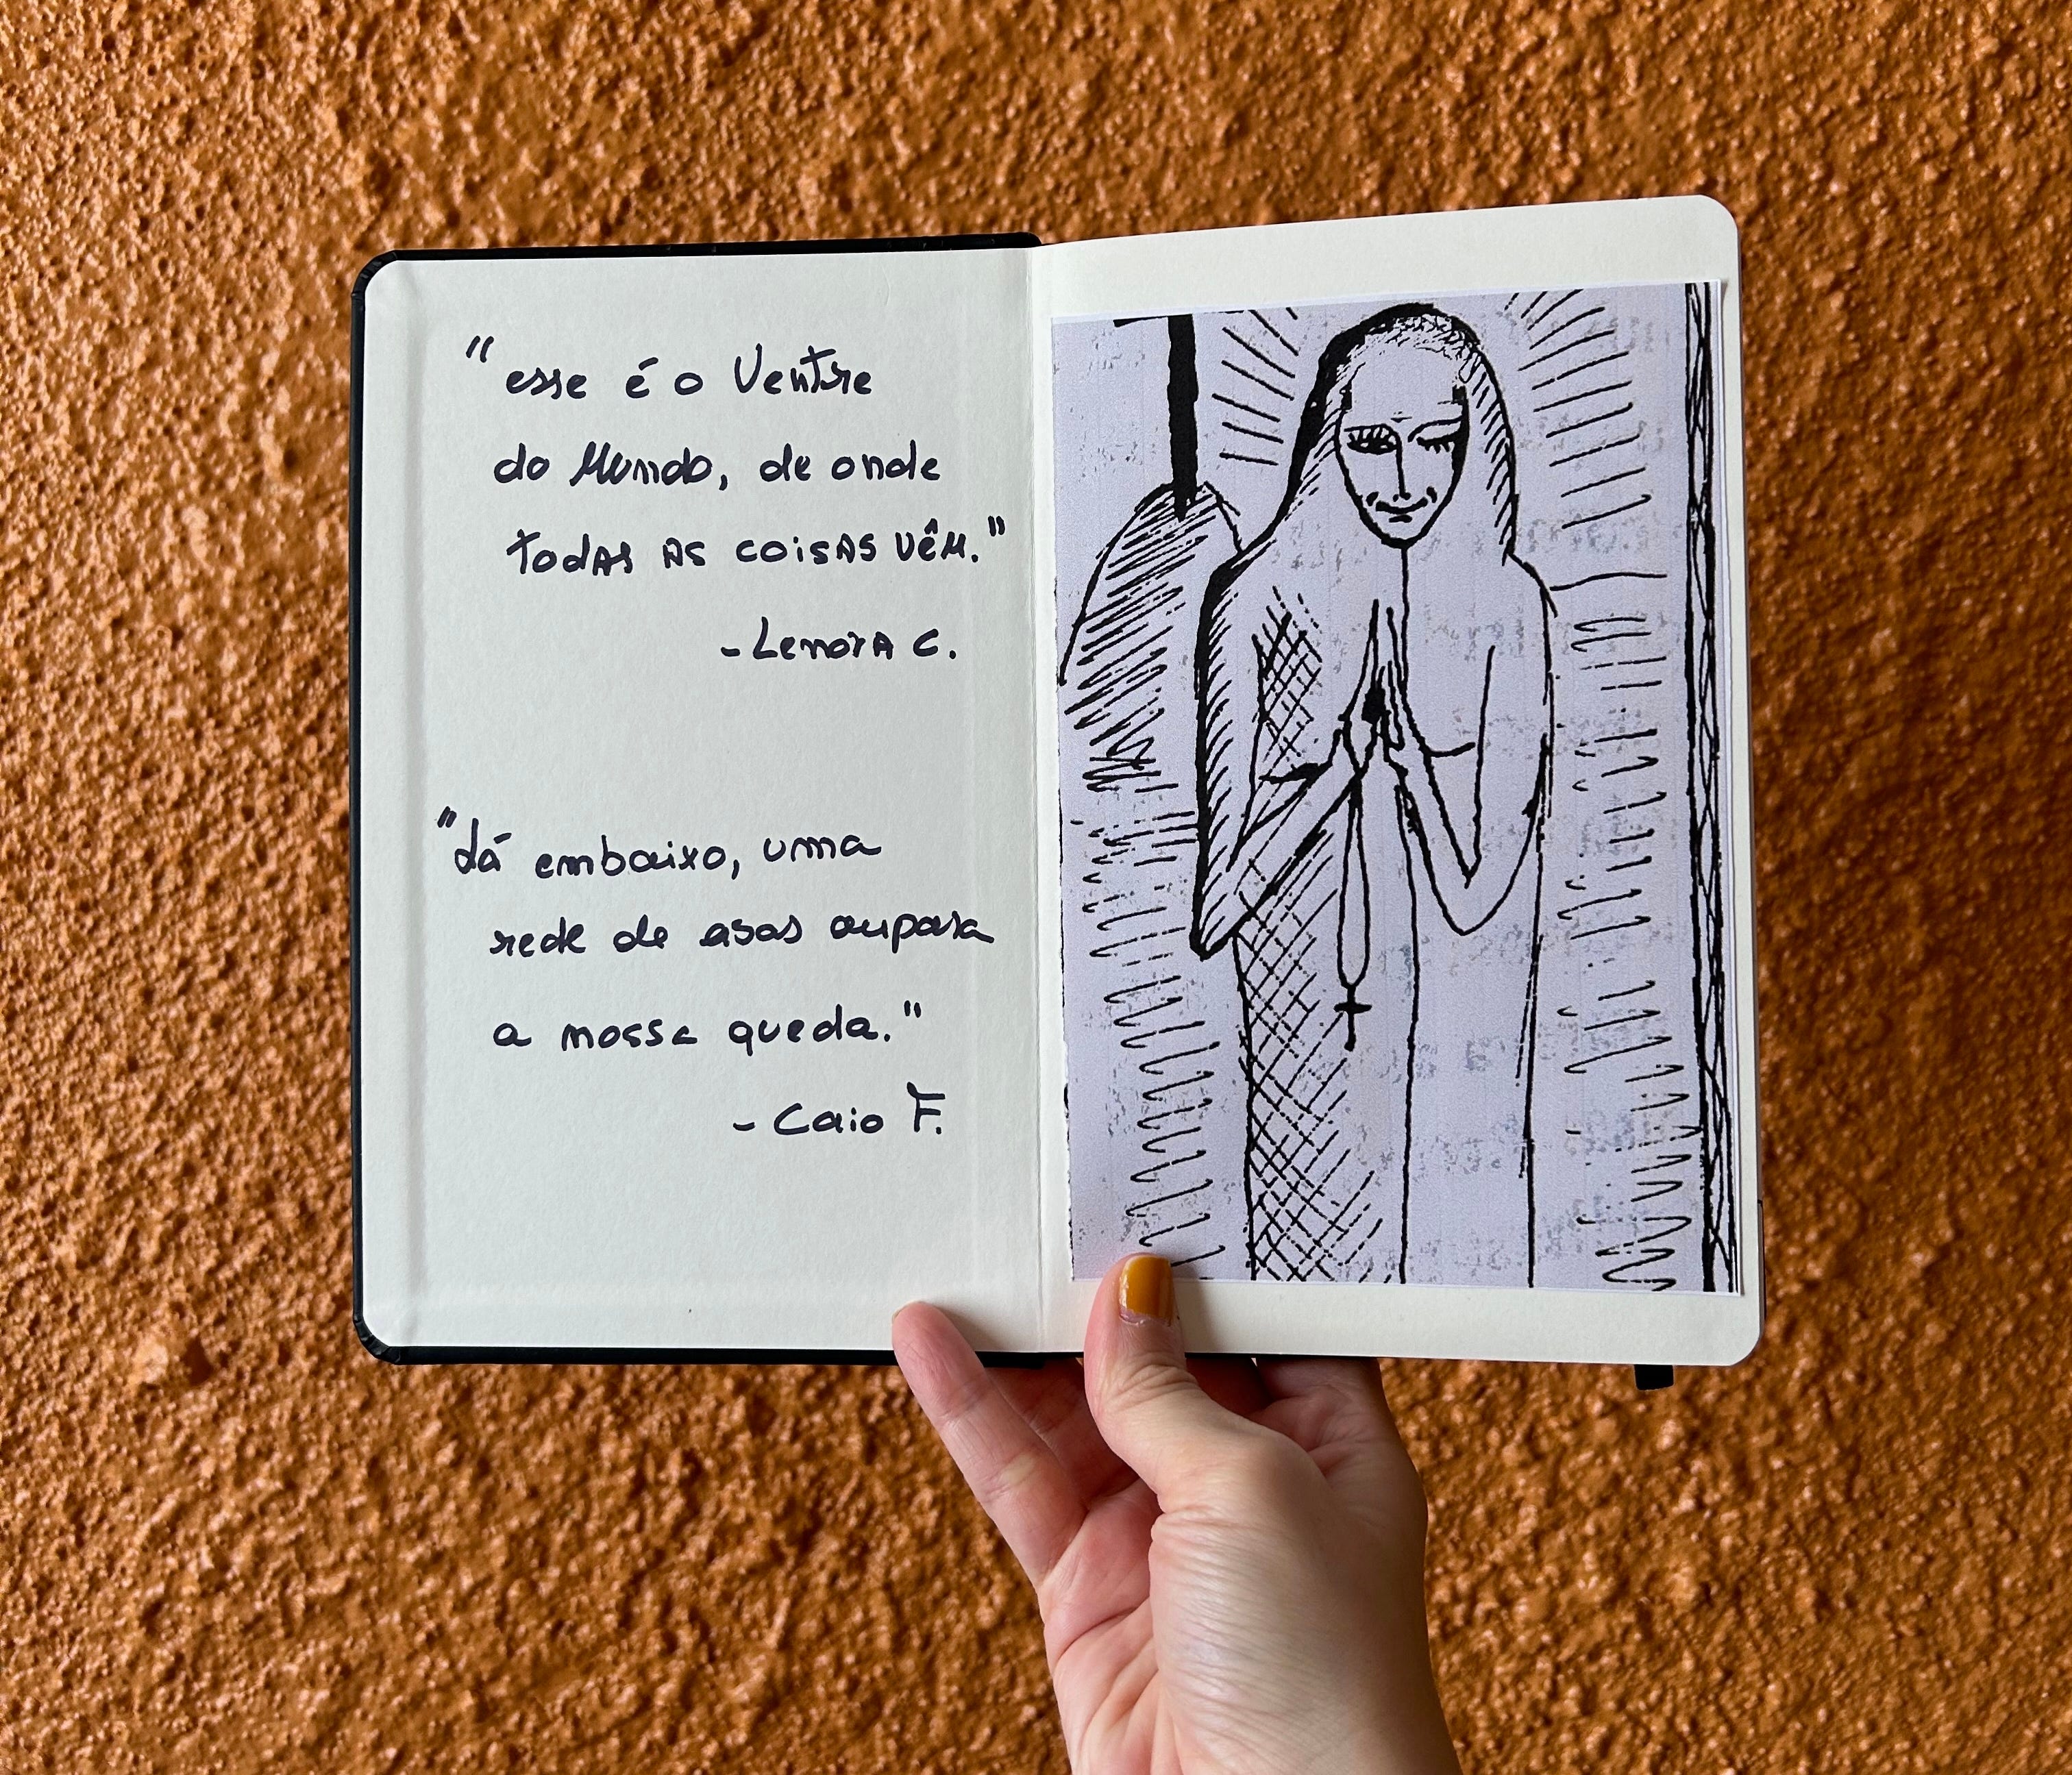 "esse é o Ventre
do Mundo, de onde
todas as coisas vêm."
- Lenora C.
"Lá embaixo, uma
rede de asas ampara
a nossa queda."
- Caio F.